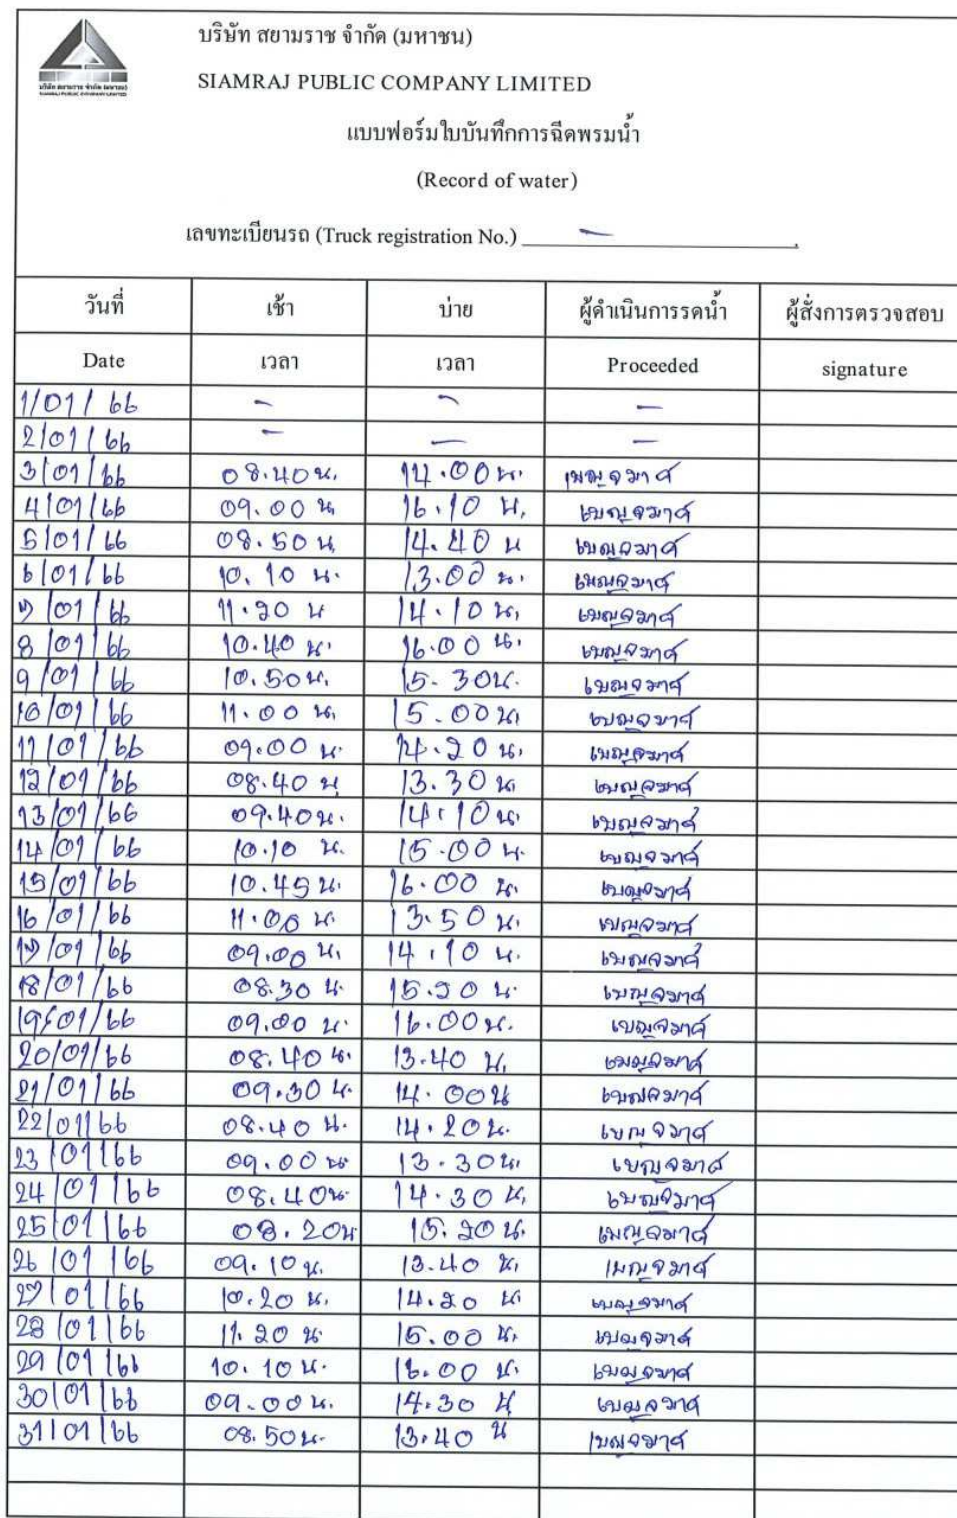 บริษัท สยามราช จำกัด (มหาชน)
บริษัท สยามราช จำกัด (มหาชน)
SIAMRAJ PUBLIC COMPANY LIMITED
SIAMRAJ PUBLIC COMPANY LIMITED
แบบฟอร์มใบบันทึกการฉีดพรมน้ำ
(Record of water)
เลขทะเบียนรถ (Truck registration No.) -
วันที่ เช้า บ่าย ผู้ดำเนินการรดน้ำ ผู้สั่งการตรวจสอบ
Date เวลา เวลา Proceeded signature
1/01/66 - - -
2/01/66 - - -
3/01/66 08.40 น. 14.00 น. เบญจมาศ
4/01/66 09.00 น. 16.10 น. เบญจมาศ
5/01/66 08.50 น. 14.40 น เบญจมาศ
6/01/66 10.10 น. 13.00 น. เบญจมาศ
7/01/66 11.20 น 14.10 น. เบญจมาศ
8/01/66 10.40 น. 16.00 น. เบญจมาศ
9/01/66 10.50 น. 15.30 น. เบญจมาศ
10/01/66 11.00 น. 15.00 น. เบญจมาศ
11/01/66 09.00 น. 14.20 น. เบญจมาศ
12/01/66 08.40 น 13.30 น. เบญจมาศ
13/01/66 09.40 น. 14.10 น. เบญจมาศ
14/01/66 10.10 น. 15.00 น. เบญจมาศ
15/01/66 10.45 น. 16.00 น. เบญจมาศ
16/01/66 11.00 น. 13.50 น. เบญจมาศ
17/01/66 09.00 น. 14.10 น. เบญจมาศ
18/01/66 08.30 น. 15.20 น. เบญจมาศ
19/01/66 09.00 น. 16.00 น. เบญจมาศ
20/01/66 08.40 น. 13.40 น. เบญจมาศ
21/01/66 09.30 น. 14.00 น เบญจมาศ
22/01/66 08.40 น. 14.20 น. เบญจมาศ
23/01/66 09.00 น. 13.30 น. เบญจมาศ
24/01/66 08.40 น. 14.30 น. เบญจมาศ
25/01/66 08.20 น. 15.20 น. เบญจมาศ
26/01/66 09.10 น. 13.40 น. เบญจมาศ
27/01/66 10.20 น. 14.20 น. เบญจมาศ
28/01/66 11.20 น. 15.00 น. เบญจมาศ
29/01/66 10.10 น. 16.00 น. เบญจมาศ
30/01/66 09.00 น. 14.30 น เบญจมาศ
31/01/66 08.50 น. 13.40 น เบญจมาศ